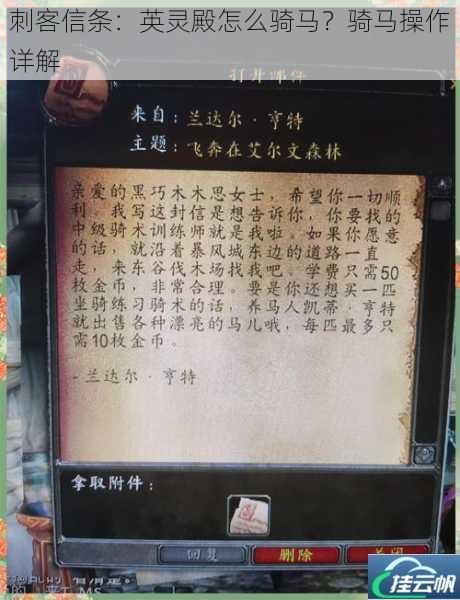 刺客信条：英灵殿怎么骑马？骑马操作
详解
打开邮件
来自：兰达尔·亨特
主题：飞奔在艾尔文森林
亲爱的黑巧木木思女士，希望你一切顺
利。我写这封信是想告诉你，你要找的
中级骑术训练师就是我啦。如果你愿意
的话，就沿着暴风城东边的道路一直
走，来东谷伐木场找我吧。学费只需50
枚金币，非常合理。要是你还想买一匹
坐骑练习骑术的话，养马人凯蒂·亨特
就出售各种漂亮的马儿哦，每匹最多只
需10枚金币。
-兰达尔·亨特
拿取附件：
回复 删除 关闭
挂云帆